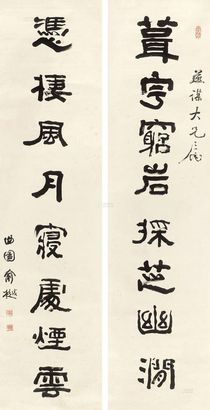 大兄
葺宇窮岩採芝幽澗
憑棲風月寢處煙雲
曲園俞樾